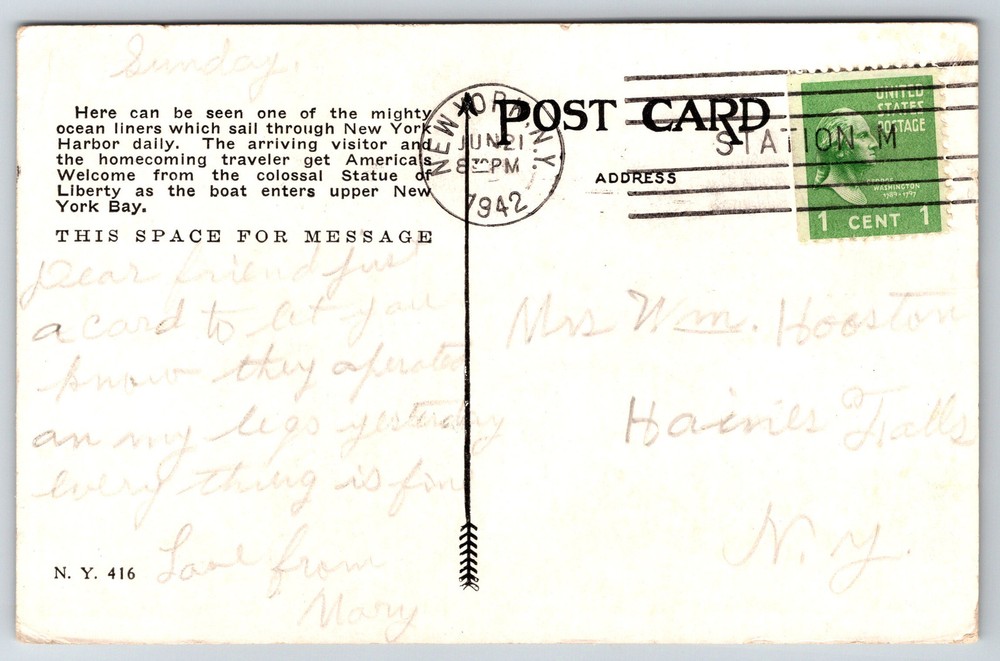 Sunday.
Here can be seen one of the mighty
ocean liners which sail through New York
Harbor daily. The arriving visitor and
the homecoming traveler get America's
Welcome from the colossal Statue of
Liberty as the boat enters upper New
York Bay.
THIS SPACE FOR MESSAGE
Dear friend just
a card to let you
know they operated
an my legs yesterday
every thing is fine
Love from
Mary
N. Y. 416
NEW YORK, N.Y.
JUN 21
8 30 PM
1942
POST CARD
STATION M
ADDRESS
UNITED
STATES
POSTAGE
GEORGE
WASHINGTON
1789-1797
1 CENT 1
Mrs Wm. Hooston
Haines Falls
N. y.